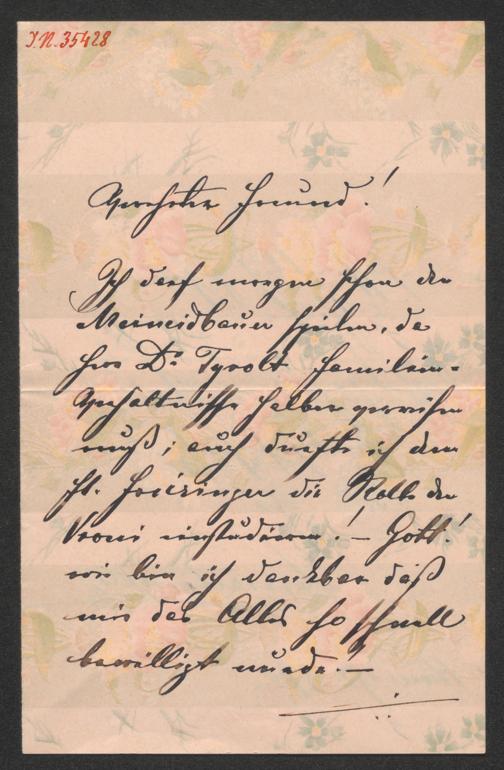 J.N. 35428
Verehrter Freund!
Ich darf morgen schon den
Meineidbauer spielen, da
Herr Dr. Tyrolt Familien-
verhältnisse halber verreisen
muß; auch durfte ich dem
Frl. die Rolle der
Vroni einstudieren! – Gott!
wie bin ich dankbar daß
mir das Alles so schnell
bewilligt wurde! –